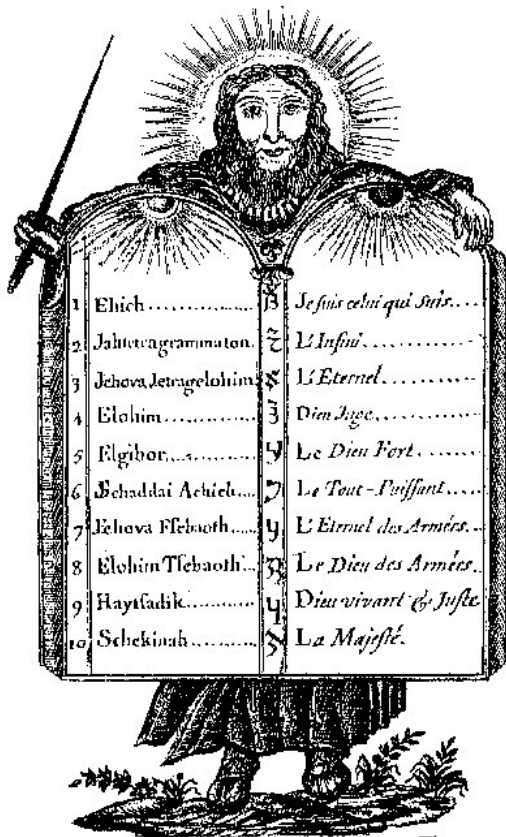 1 Ehieh ........ Je suis celui qui suis....
2 Jahtetragrammaton. L'Infini............
3 Jehova, Jetragelohim L'Eternel..........
4 Elohim............ Dieu Juge............
5 Elgibor............ Le Dieu Fort........
6 Schaddai Achieh.... Le Tout-Puissant.....
7 Jehova Tsebaoth.... L'Eternel des Armées..
8 Elohim Tsebaoth.... Le Dieu des Armées..
9 Haytsadik.......... Dieu vivant & Juste
10 Schekinah......... La Majesté.